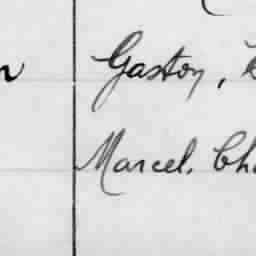 Gaston,
Marcel,